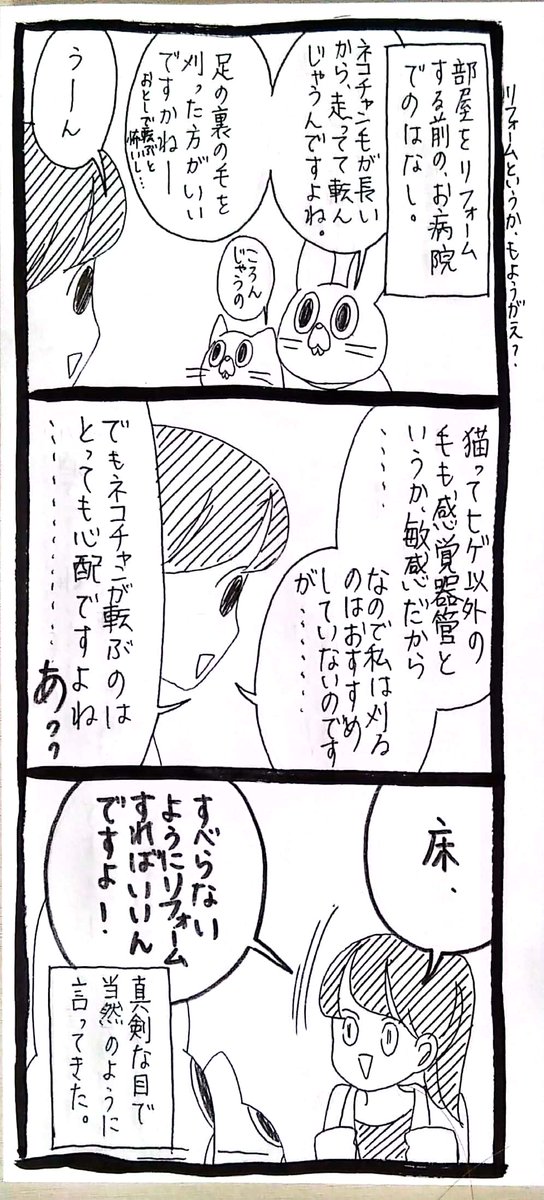 リフォームというか、もようがえ？
部屋をリフォーム
する前の、お病院
でのはなし。
ネコチャン毛が長い
から、走ってて転ん
じゃうんですよね。
足の裏の毛を
刈った方がいい
ですかねー
おとしで転ぶと
怖いし…
ころん
じゃうの
うーん
猫ってヒゲ以外の
毛も感覚器管と
いうか、敏感だから
‥‥‥
なので私は刈る
のはおすすめ
していないのです
が‥‥‥
でもネコチャンが転ぶのは
とっても心配ですよね
‥‥‥‥‥‥
あっっ
床、
すべらない
ようにリフォーム
すればいいん
ですよ！
真剣な目で
当然のように
言ってきた。